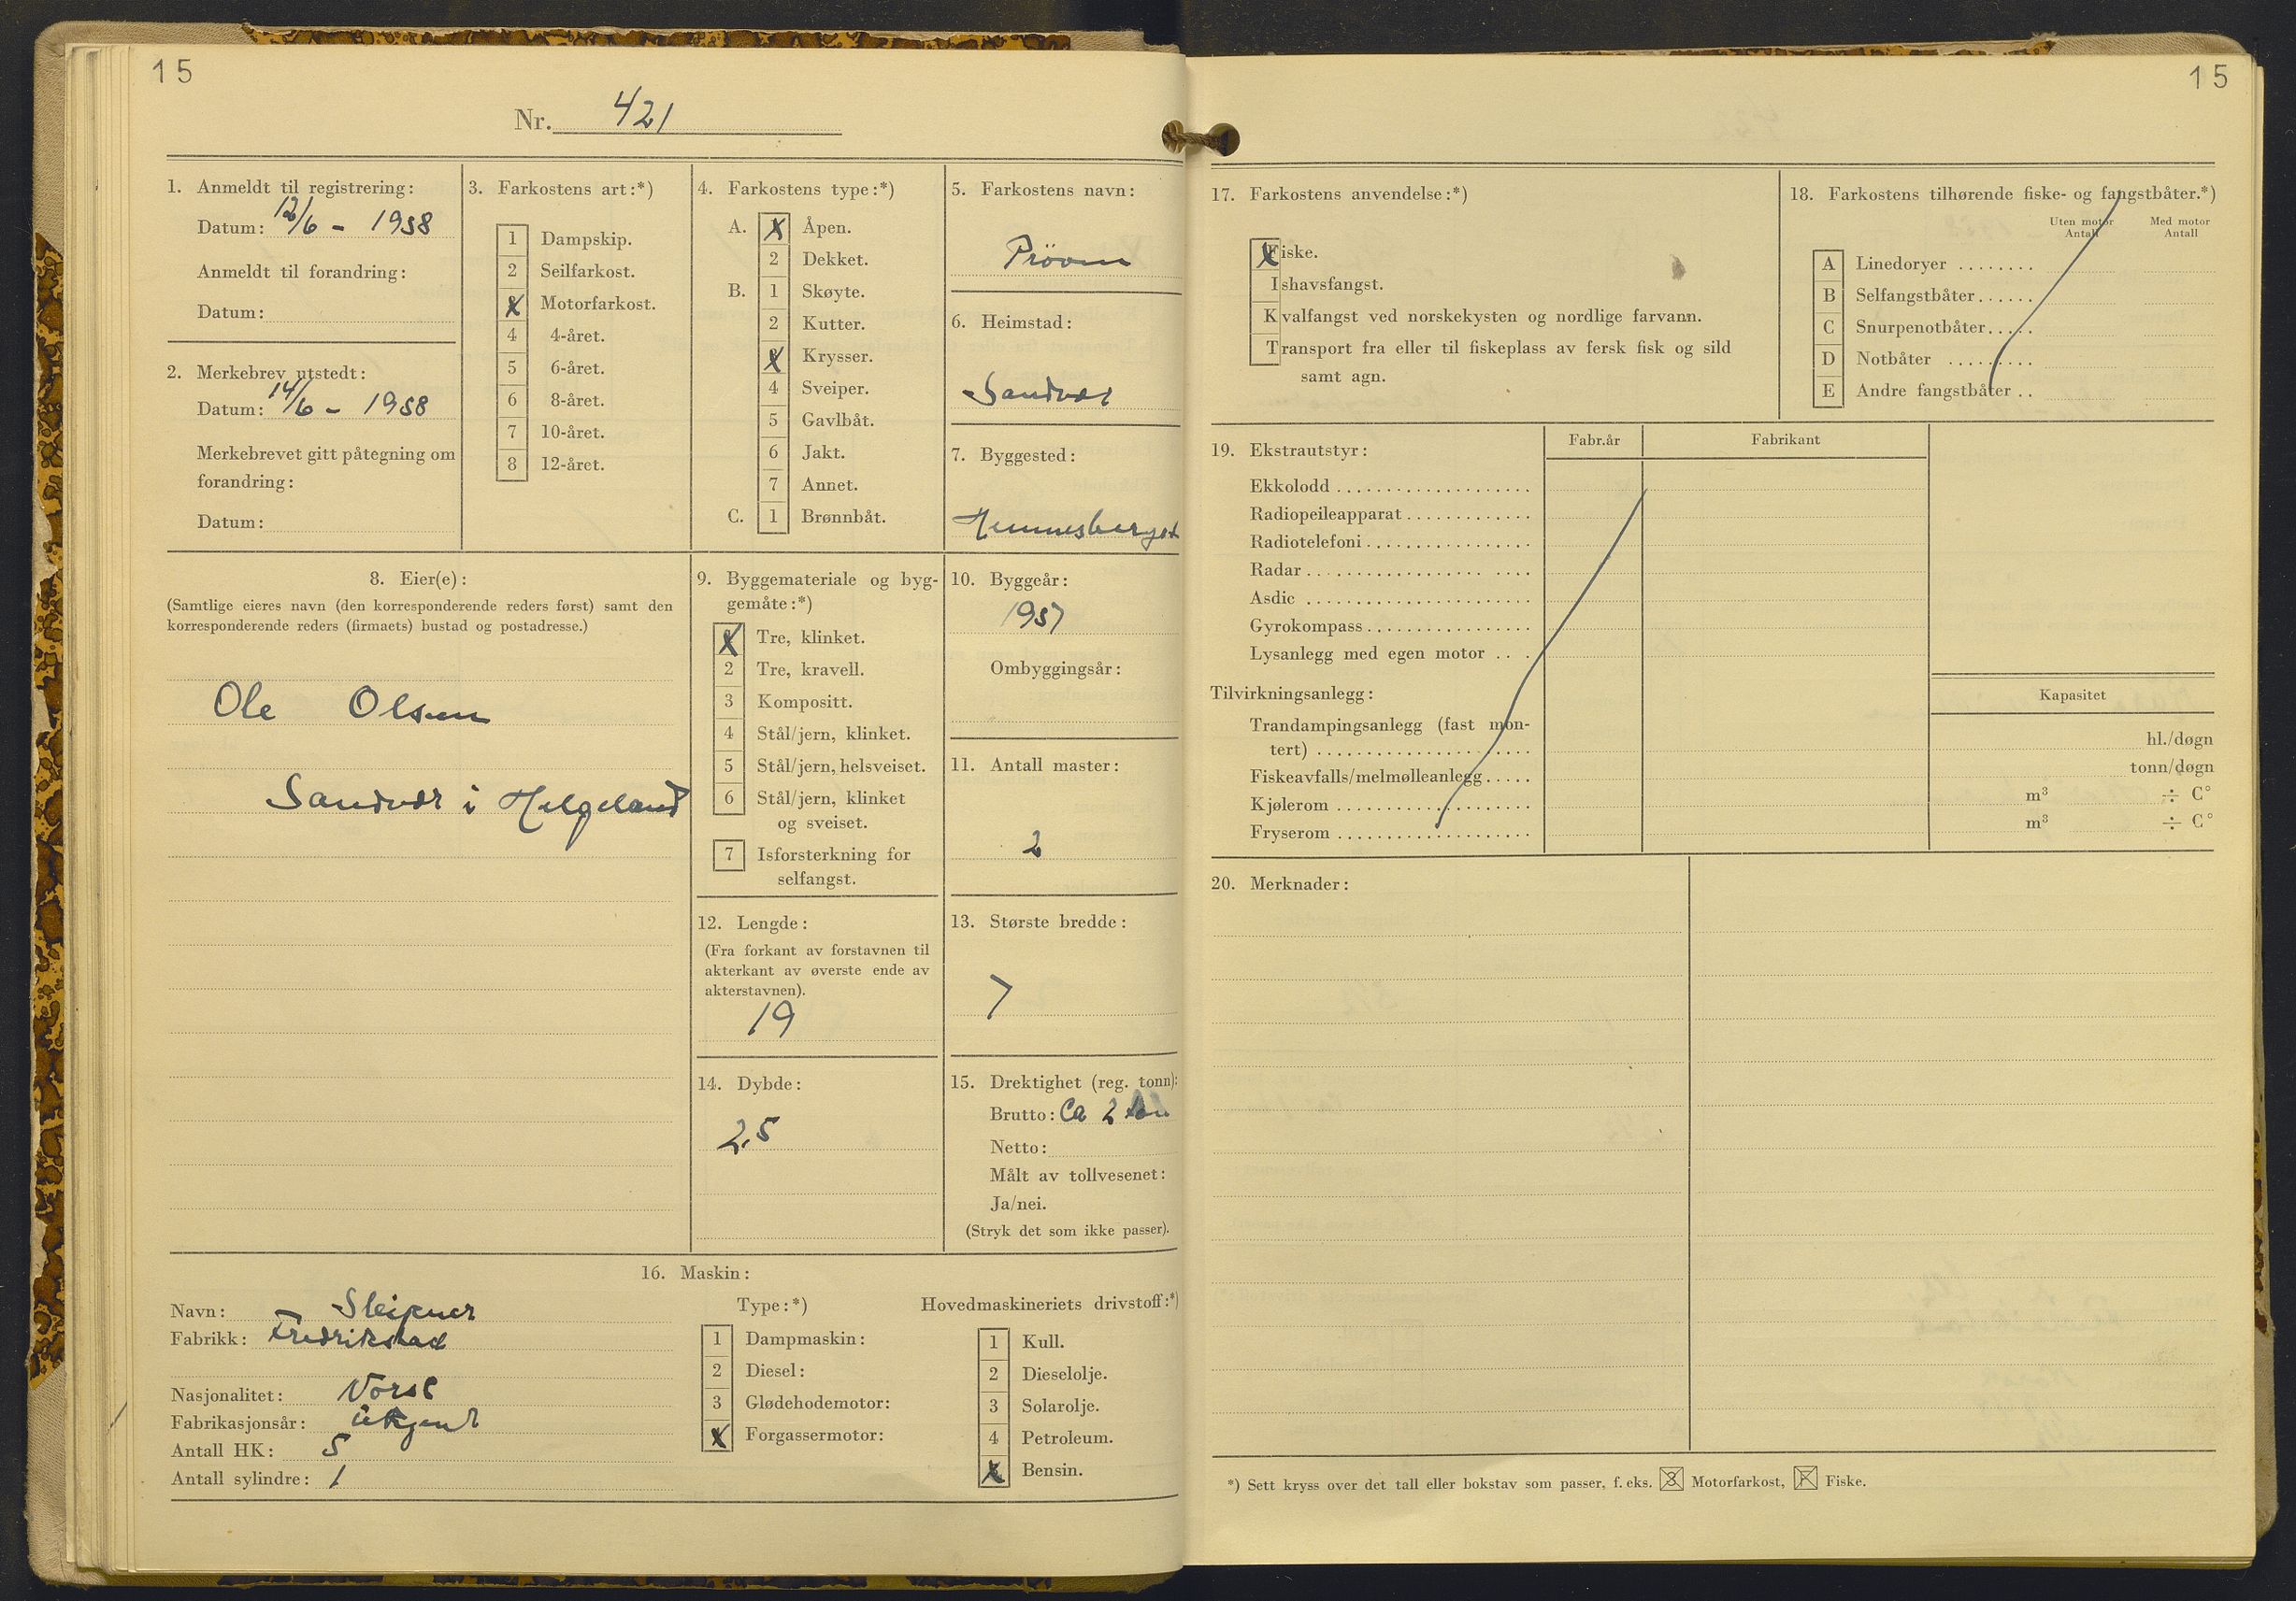 15
Nr. 421
1. Anmeldt til registrering:
Datum: 12/6 - 1958
Anmeldt til forandring:
Datum:
2. Merkebrev utstedt:
Datum: 14/6 - 1958
Merkebrevet gitt påtegning om
forandring:
Datum:
3. Farkostens art:*)
1 Dampskip.
2 Seilfarkost.
X Motorfarkost.
4 4-året.
5 6-året.
6 8-året.
7 10-året.
8 12-året.
4. Farkostens type:*)
A. X Åpen.
2 Dekket.
B. 1 Skøyte.
2 Kutter.
X Krysser.
4 Sveiper.
5 Gavlbåt.
6 Jakt.
7 Annet.
C. 1 Brønnbåt.
5. Farkostens navn:
Pröven
6. Heimstad:
Sandvær
7. Byggested:
Hemnesberget
8. Eier(e):
(Samtlige eieres navn (den korresponderende reders først) samt den
korresponderende reders (firmaets) bustad og postadresse.)
Ole Olsen
Sandvær i Helgeland
9. Byggemateriale og byg-
gemåte:*)
X Tre, klinket.
2 Tre, kravell.
3 Kompositt.
4 Stål/jern, klinket.
5 Stål/jern, helsveiset.
6 Stål/jern, klinket
og sveiset.
7 Isforsterkning for
selfangst.
10. Byggeår:
1957
Ombyggingsår:
11. Antall master:
2
12. Lengde:
(Fra forkant av forstavnen til
akterkant av øverste ende av
akterstavnen).
19
13. Største bredde:
7
14. Dybde:
2,5
15. Drektighet (reg. tonn):
Brutto: Ca 2 ton
Netto:
Målt av tollvesenet:
Ja/nei.
(Stryk det som ikke passer).
16. Maskin:
Navn: Sleipner
Fabrikk: Fredrikstad
Nasjonalitet: Norsk
Fabrikasjonsår: ukjent
Antall HK: 5
Antall sylindre: 1
Type:*)
1 Dampmaskin:
2 Diesel:
3 Glødehodemotor:
X Forgassermotor:
Hovedmaskineriets drivstoff:*)
1 Kull.
2 Dieselolje.
3 Solarolje.
4 Petroleum.
X Bensin.
15
17. Farkostens anvendelse:*)
Fiske.
Ishavsfangst.
Kvalfangst ved norskekysten og nordlige farvann.
Transport fra eller til fiskeplass av fersk fisk og sild
samt agn.
18. Farkostens tilhørende fiske- og fangstbåter.*)
Uten motor Antall
Med motor Antall
A Linedoryer ........
B Selfangstbåter......
C Snurpenotbåter.....
D Notbåter .........
E Andre fangstbåter ..
19. Ekstrautstyr:
Fabr.år
Fabrikant
Ekkolodd ....................
Radiopeileapparat.............
Radiotelefoni.................
Radar .......................
Asdic .......................
Gyrokompass.................
Lysanlegg med egen motor ....
Tilvirkningsanlegg:
Kapasitet
Trandampingsanlegg (fast mon-
tert) ...................... hl./døgn
Fiskeavfalls/melmølleanlegg..... tonn/døgn
Kjølerom .................... m³ ÷ C°
Fryserom .................... m³ ÷ C°
20. Merknader:
*) Sett kryss over det tall eller bokstav som passer, f. eks. 3 Motorfarkost, F Fiske.